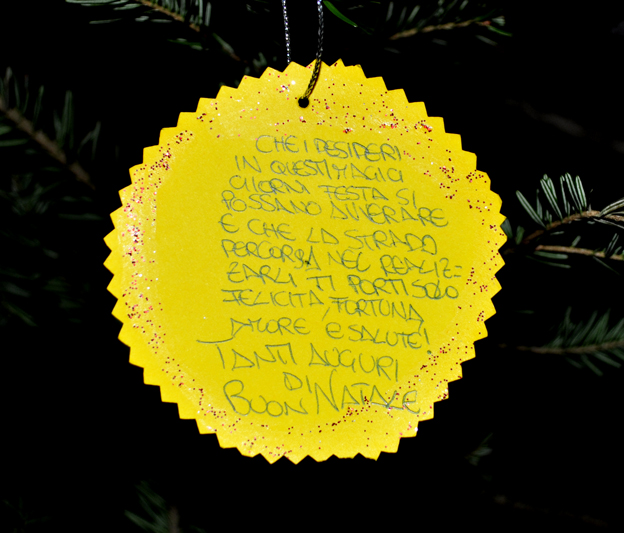 CHE I DESIDERI
IN QUESTI MAGICI
GIORNI FESTA SI
POSSANO AVVERARE
E CHE LA STRADA
PERCORSA NEL REALIZ=
ZARLI TI PORTI SOLO
FELICITÀ, FORTUNA
AMORE E SALUTE!
TANTI AUGURI
DI
BUON NATALE